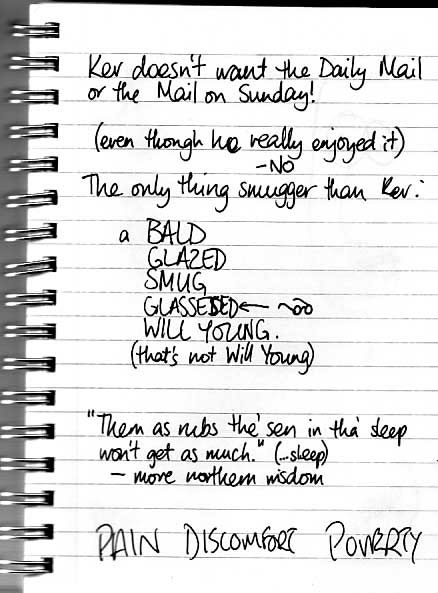 Kev doesn't want the Daily Mail
or the Mail on Sunday!
(even though he really enjoyed it)
-NO
The only thing smugger than Kev:
a BALD
GLAZED
SMUG
GLASSESED
WILL YOUNG.
(that's not Will Young)
"Them as rubs the' sen in tha' sleep
won't get as much." (...sleep)
- more northern wisdom
PAIN DISCOMFORT POVERTY